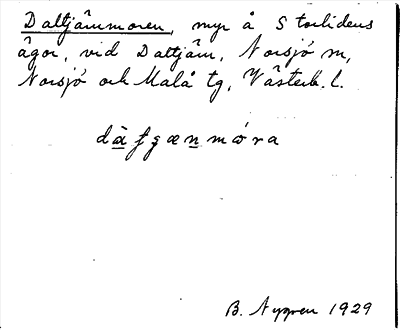 Dattjärnmoren, myr å Storlidens
ägor, vid Dattjärn, Norsjö sn,
Norsjö och Malå tg, Västerb. l.
B. Nygren 1929